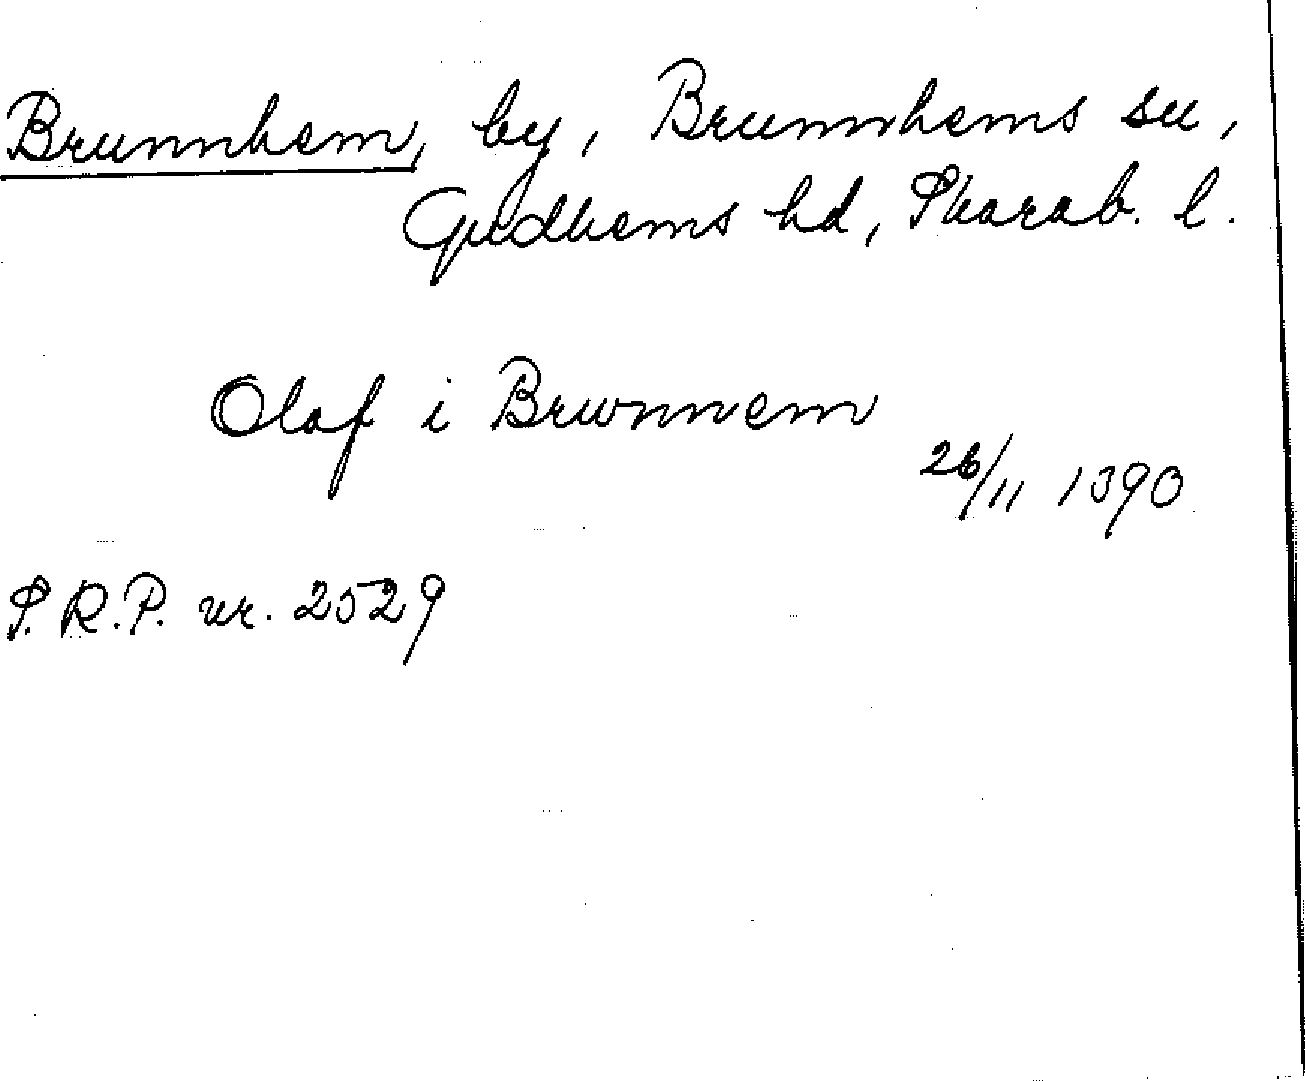 Brunnhem, by, Brunnhems sn,
Gudhems hd, Skarab. l.
Olaf i Brwnnem
26/11 1390
S.R.P. nr. 2529